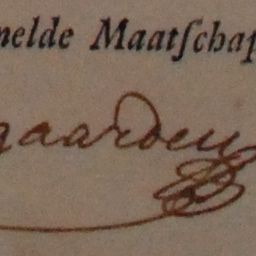 melde Maatſchap
gaarden